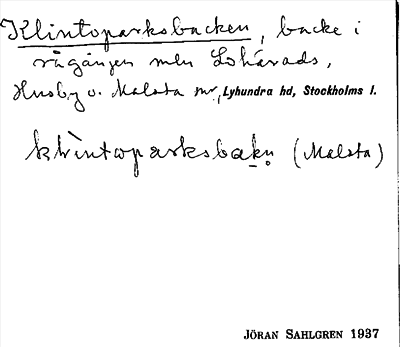 Klintoparksbacken, backe i
rågången mln Lohärads,
Husby o. Malsta snr, Lyhundra hd, Stockholms l.
(Malsta)
JÖRAN SAHLGREN 1937